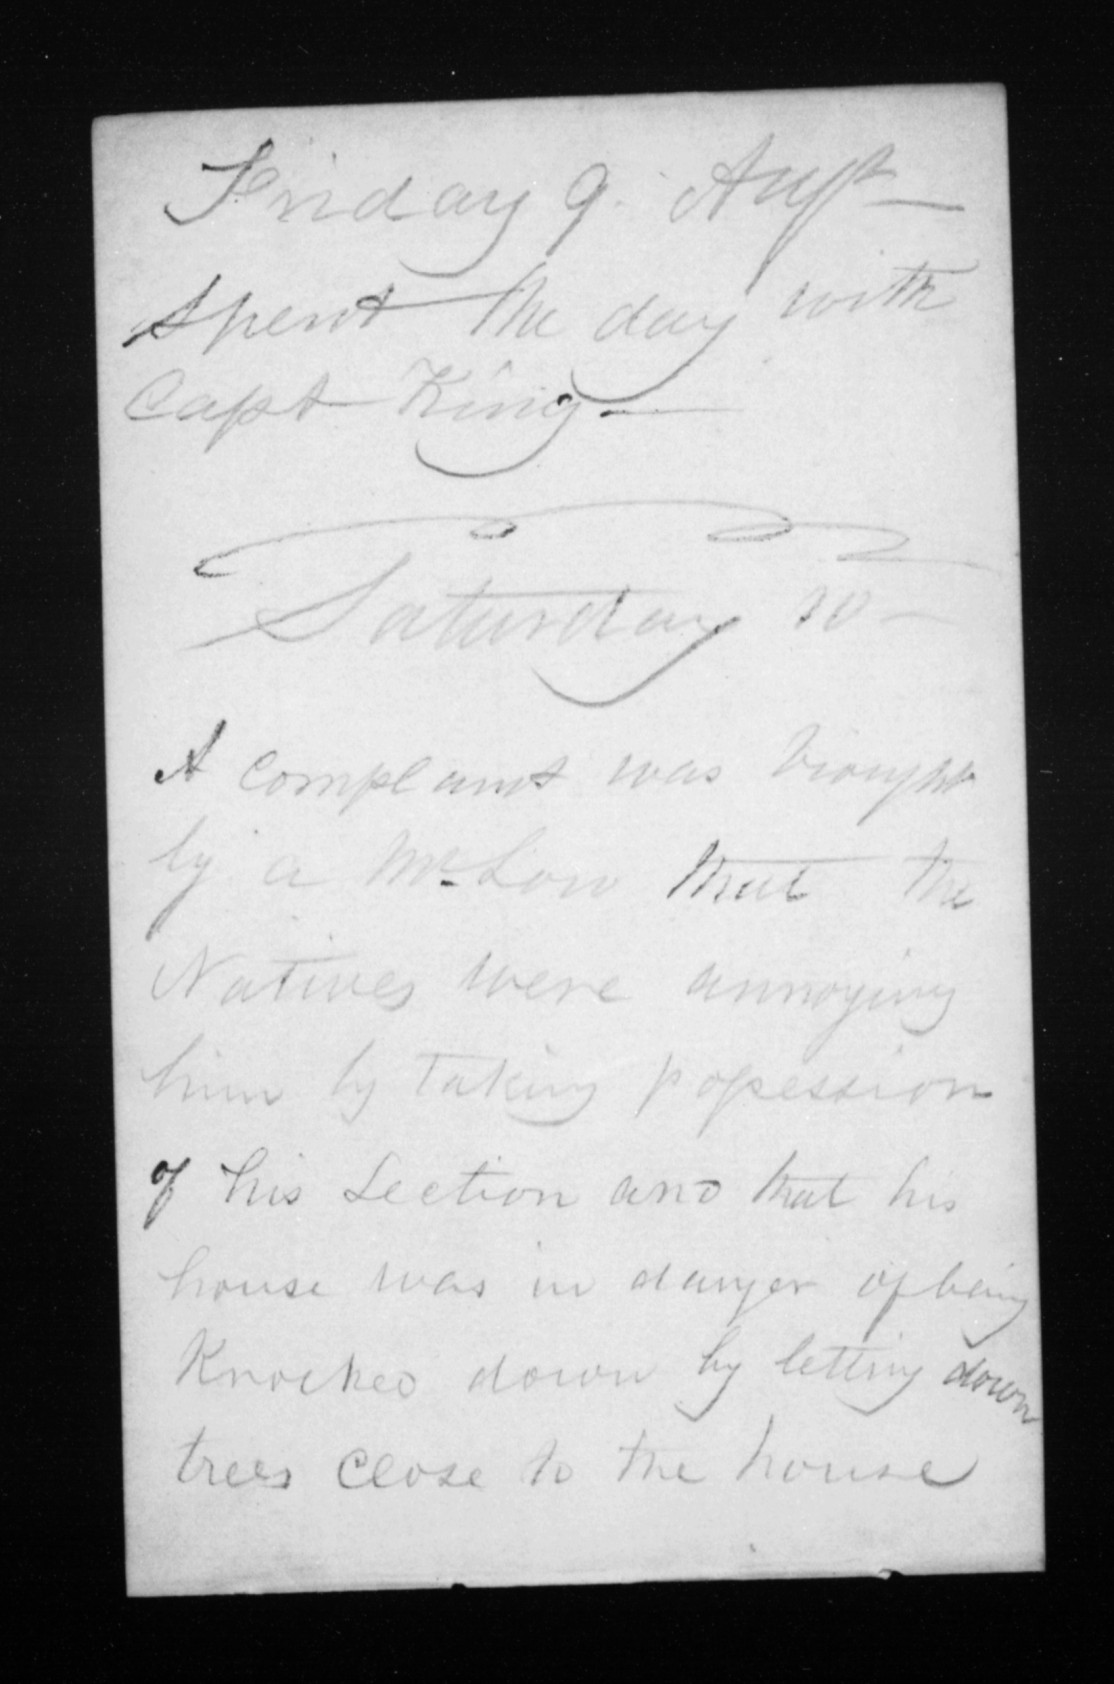 Friday 9. Augt
Spent the day with
Capt King
Saturday 10
A complaint was brought
by a Mr. Low that the
Natives were annoying
him by taking possession
of his Section and that his
house was in danger of being
Knocked down by letting down
trees close to the house